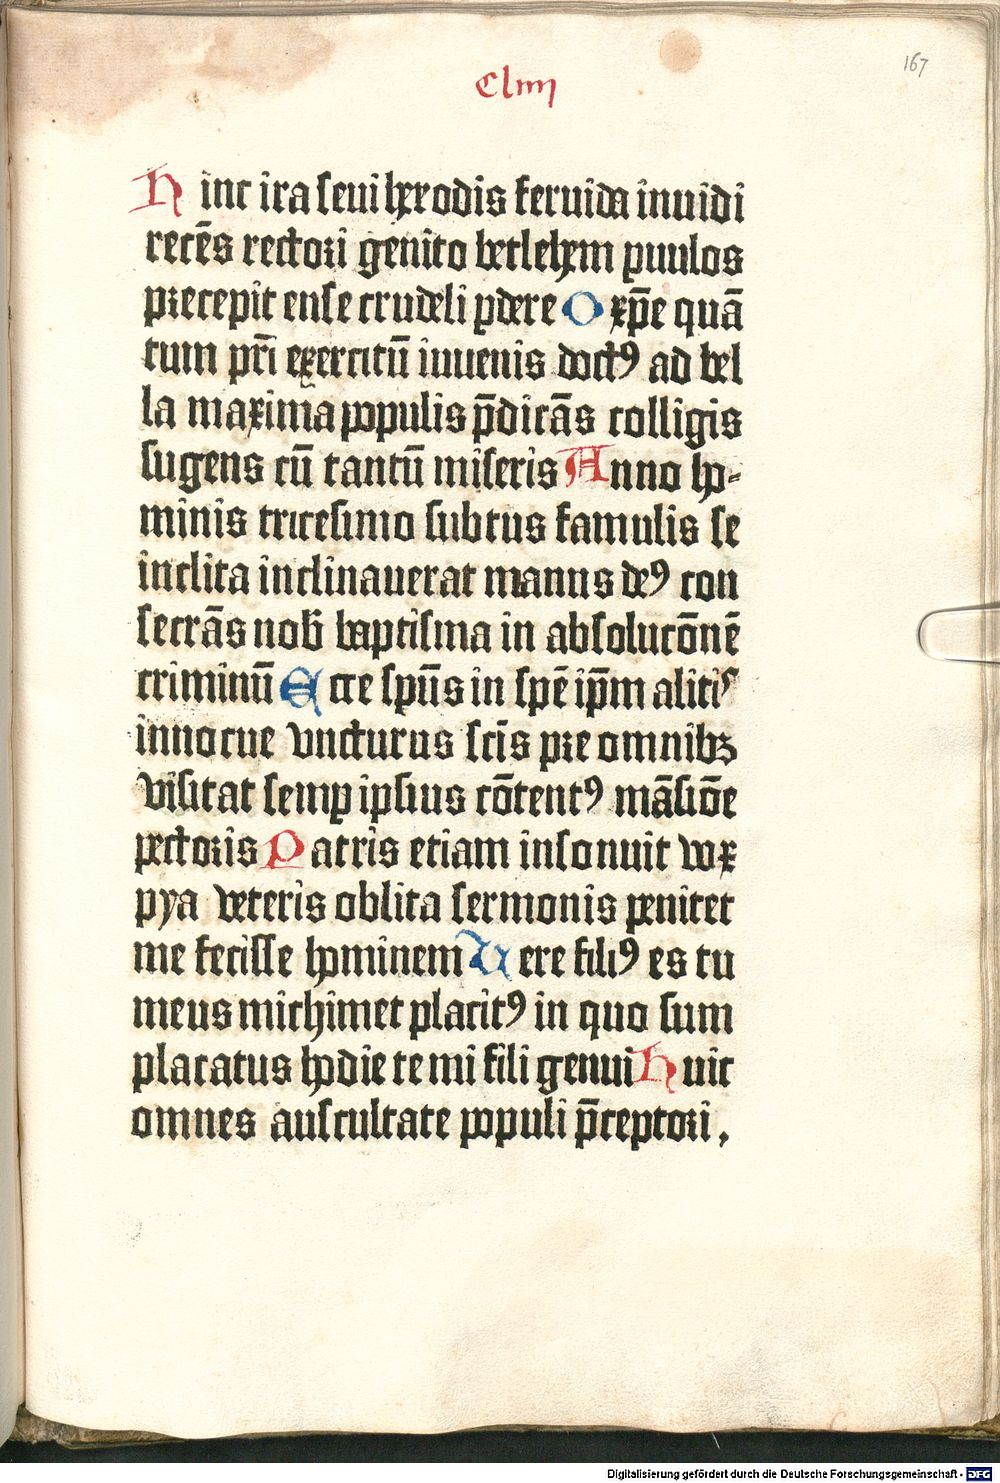 Cliiij
167
Hinc ira seui herodis feruida inuidi
recēs rectori genito betlehem ꝑuulos
precepit ense crudeli ꝑdere O xp̄e quā
tum pr̄i exercitū iuuenis doctꝰ ad bel
la maxima populis p̄dicās colligis
sugens cū tantū miseris Anno ho-
minis tricesimo subtus famulis se
inclita inclinauerat manus deꝰ con
secrās nob̄ baptisma in absolucōnē
criminū Ecce spūs in spē ip̄m alitis
innocue vncturus sc̄is pre omnibꝫ
visitat semꝑ ipsius cōtentꝰ māsiōe
pectoris Patris etiam insonuit vox
pya veteris oblita sermonis penitet
me fecisse hominem Uere filiꝰ es tu
meus michimet placitꝰ in quo sum
placatus hodie te mi fili genui Huic
omnes auscultate populi p̄ceptori,
Digitalisierung gefördert durch die Deutsche Forschungsgemeinschaft - DFG